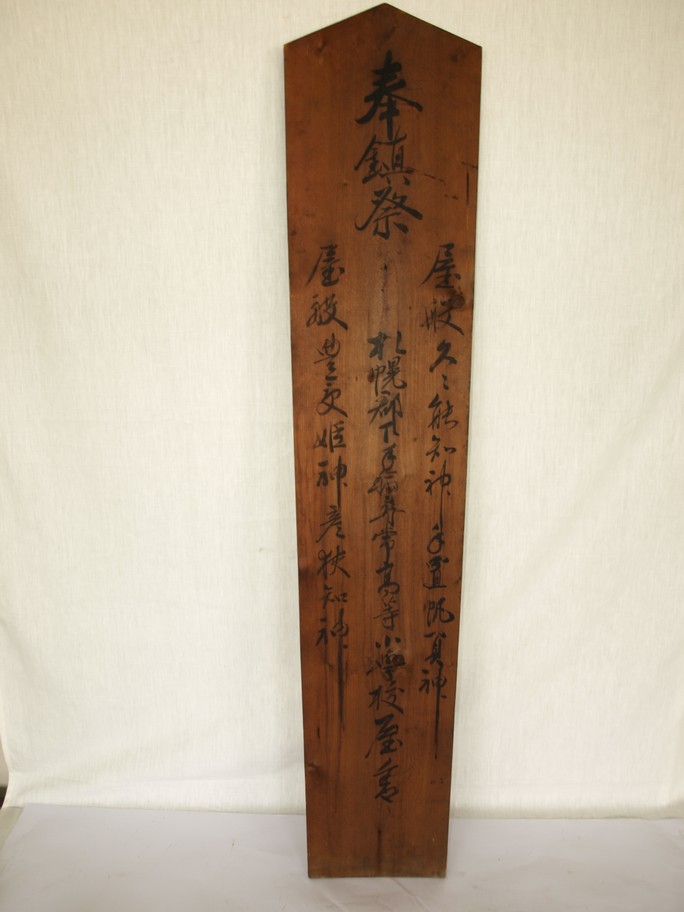 奉鎮祭
屋船久々能知神 手置帆負神
札幌郡下手稲尋常高等小學校屋
屋船豊受姫神 彦狭知神